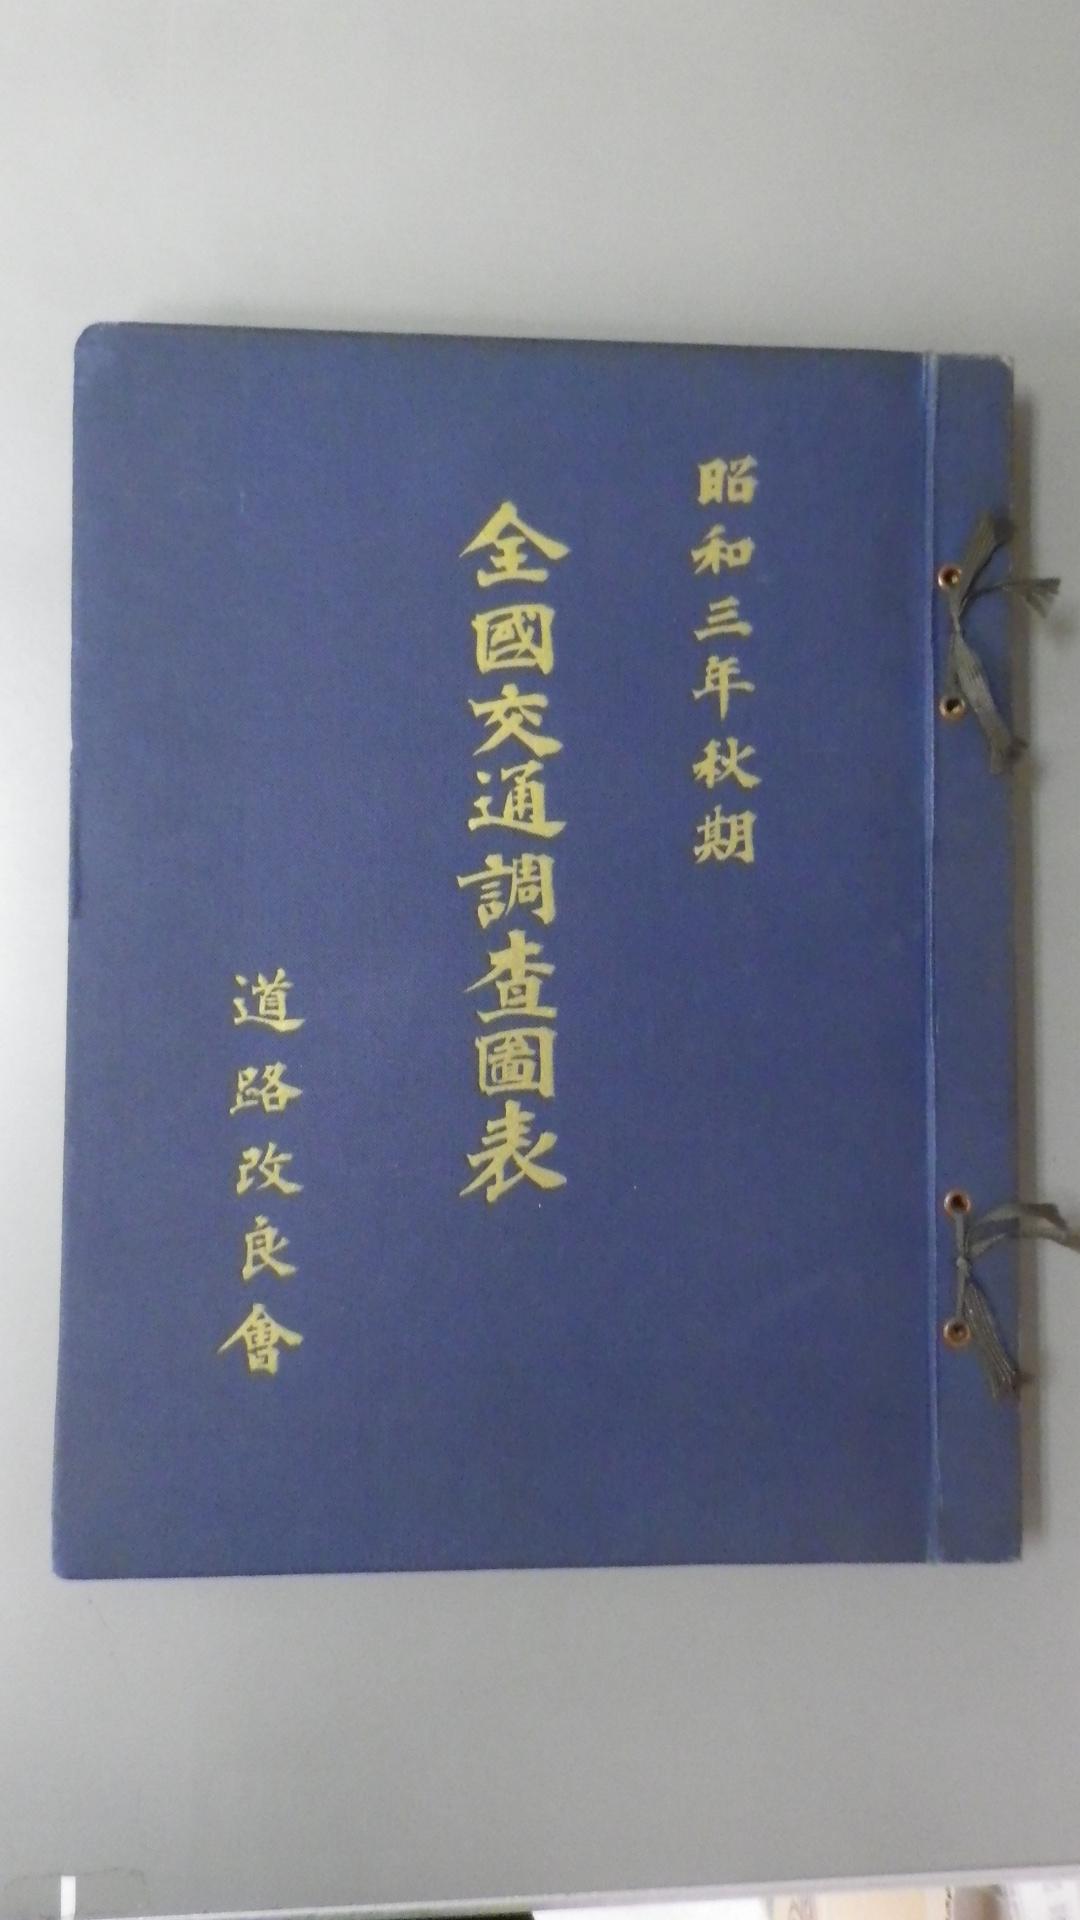 昭和三年秋期
全國交通調査圖表
道路改良會